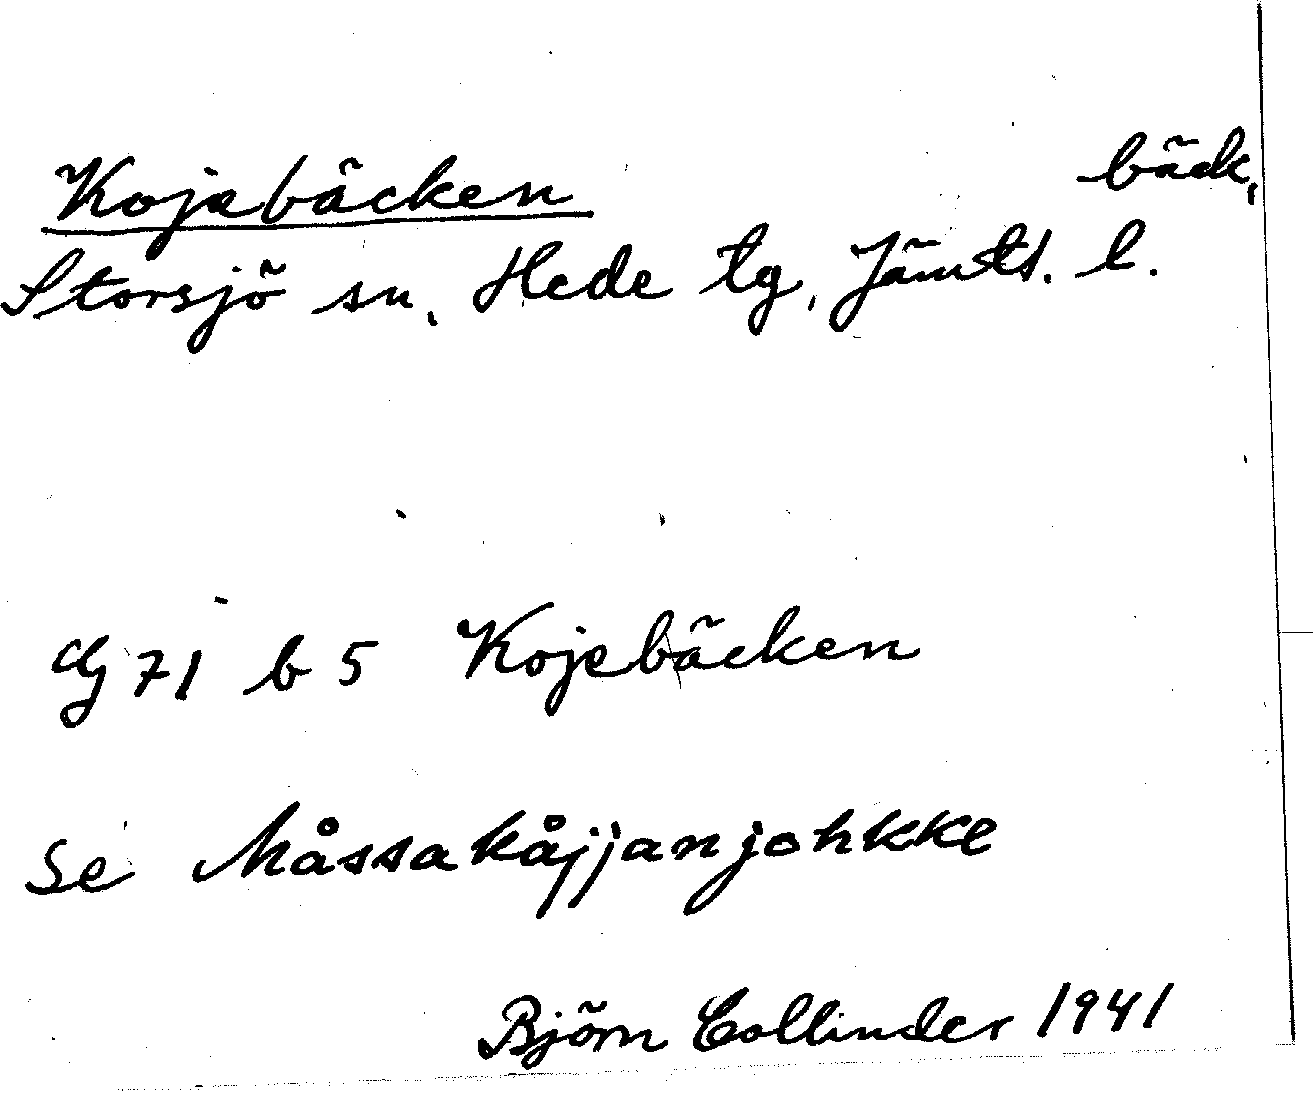 Kojebäcken bäck,
Storsjö sn, Hede tg, Jämtl. l.
G 71 b 5 Kojebäcken
Se Måssakåjjanjohkke
Björn Collinder 1941